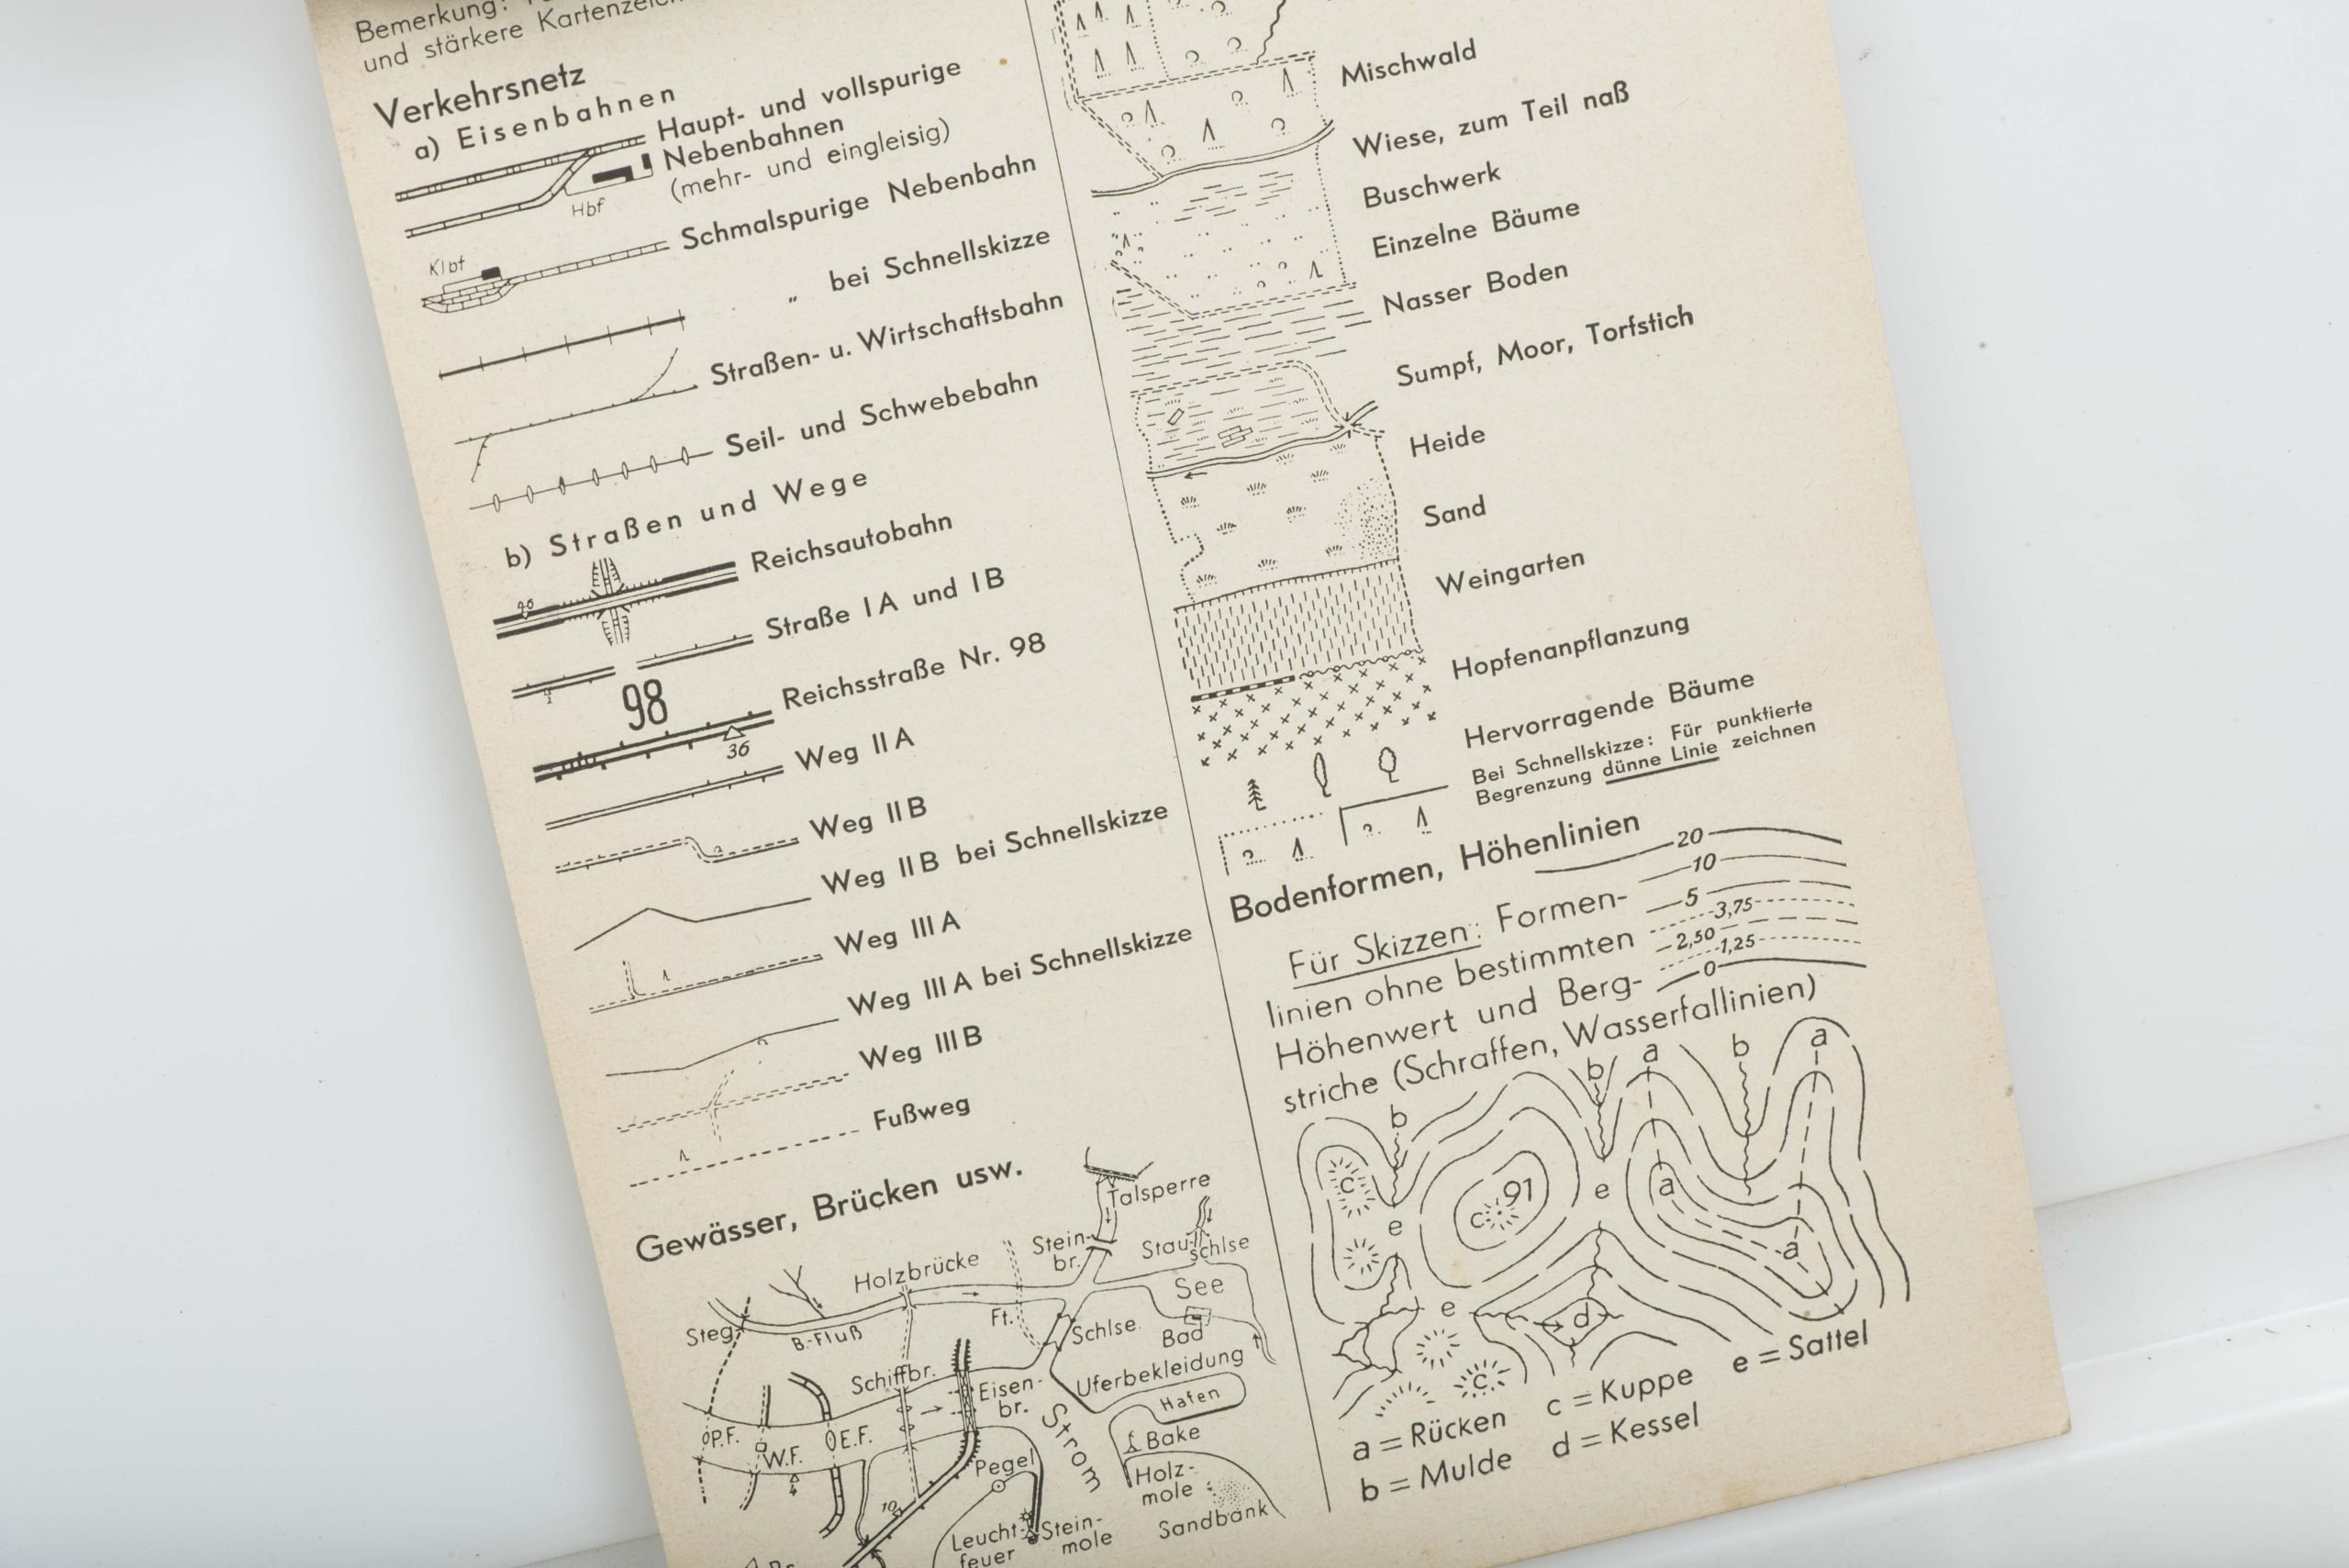 Bemerkung:
und stärkere Kartenzeich
Verkehrsnetz
a) Eisenbahnen
Haupt- und vollspurige
Nebenbahnen
(mehr- und eingleisig)
Hbf
Schmalspurige Nebenbahn
Klbf
„ bei Schnellskizze
Straßen- u. Wirtschaftsbahn
Seil- und Schwebebahn
b) Straßen und Wege
Reichsautobahn
Straße I A und I B
98
Reichsstraße Nr. 98
36
Weg II A
Weg II B
Weg II B bei Schnellskizze
Weg III A
Weg III A bei Schnellskizze
Weg III B
Fußweg
Gewässer, Brücken usw.
Talsperre
Stein-
br.
Stau-
schlse
Holzbrücke
See
Steg
B.-Fluß
Ft.
Schlse
Bad
Schiffbr.
Eisen-
br.
Uferbekleidung
Hafen
P.F.
W.F.
E.F.
Strom
Bake
4
Pegel
Holz-
mole
10
Leucht-
feuer
Stein-
mole
Sandbank
Mischwald
Wiese, zum Teil naß
Buschwerk
Einzelne Bäume
Nasser Boden
Sumpf, Moor, Torfstich
Heide
Sand
Weingarten
Hopfenanpflanzung
Hervorragende Bäume
Bei Schnellskizze: Für punktierte
Begrenzung dünne Linie zeichnen
Bodenformen, Höhenlinien
20
10
5
3,75
2,50
1,25
0
Für Skizzen: Formen-
linien ohne bestimmten
Höhenwert und Berg-
striche (Schraffen, Wasserfallinien)
b b a b a
c c 91 e a
e a
e d
c
a = Rücken c = Kuppe e = Sattel
b = Mulde d = Kessel